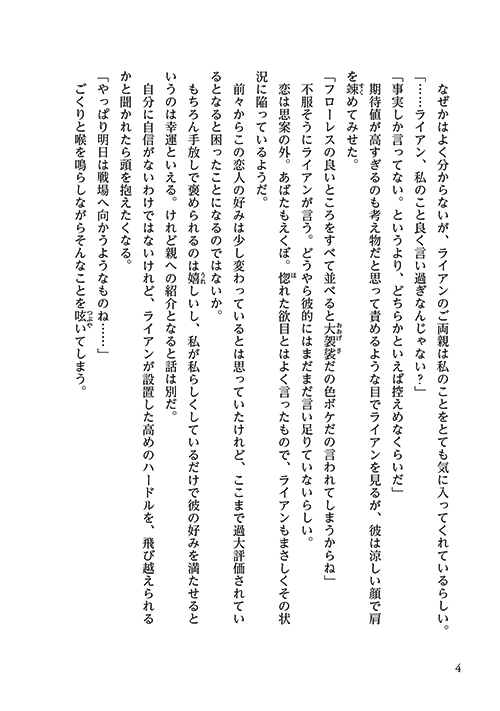 なぜかはよく分からないが、ライアンのご両親は私のことをとても気に入ってくれているらしい。
「……ライアン、私のこと良く言い過ぎなんじゃない？」
「事実しか言ってない。というより、どちらかといえば控えめなくらいだ」
期待値が高すぎるのも考え物だと思って責めるような目でライアンを見るが、彼は涼しい顔で肩
を竦めてみせた。
「フローレスの良いところをすべて並べると大袈裟だの色ボケだの言われてしまうからね」
不服そうにライアンが言う。どうやら彼的にはまだまだ言い足りていないらしい。
恋は思案の外。あばたもえくぼ。惚れた欲目とはよく言ったもので、ライアンもまさしくその状
況に陥っているようだ。
前々からこの恋人の好みは少し変わっているとは思っていたけれど、ここまで過大評価されてい
るとなると困ったことになるのではないか。
もちろん手放しで褒められるのは嬉しいし、私が私らしくしているだけで彼の好みを満たせると
いうのは幸運といえる。けれど親への紹介となると話は別だ。
自分に自信がないわけではないけれど、ライアンが設置した高めのハードルを、飛び越えられる
かと聞かれたら頭を抱えたくなる。
「やっぱり明日は戦場へ向かうようなものね……」
ごくりと喉を鳴らしながらそんなことを呟いてしまう。
4